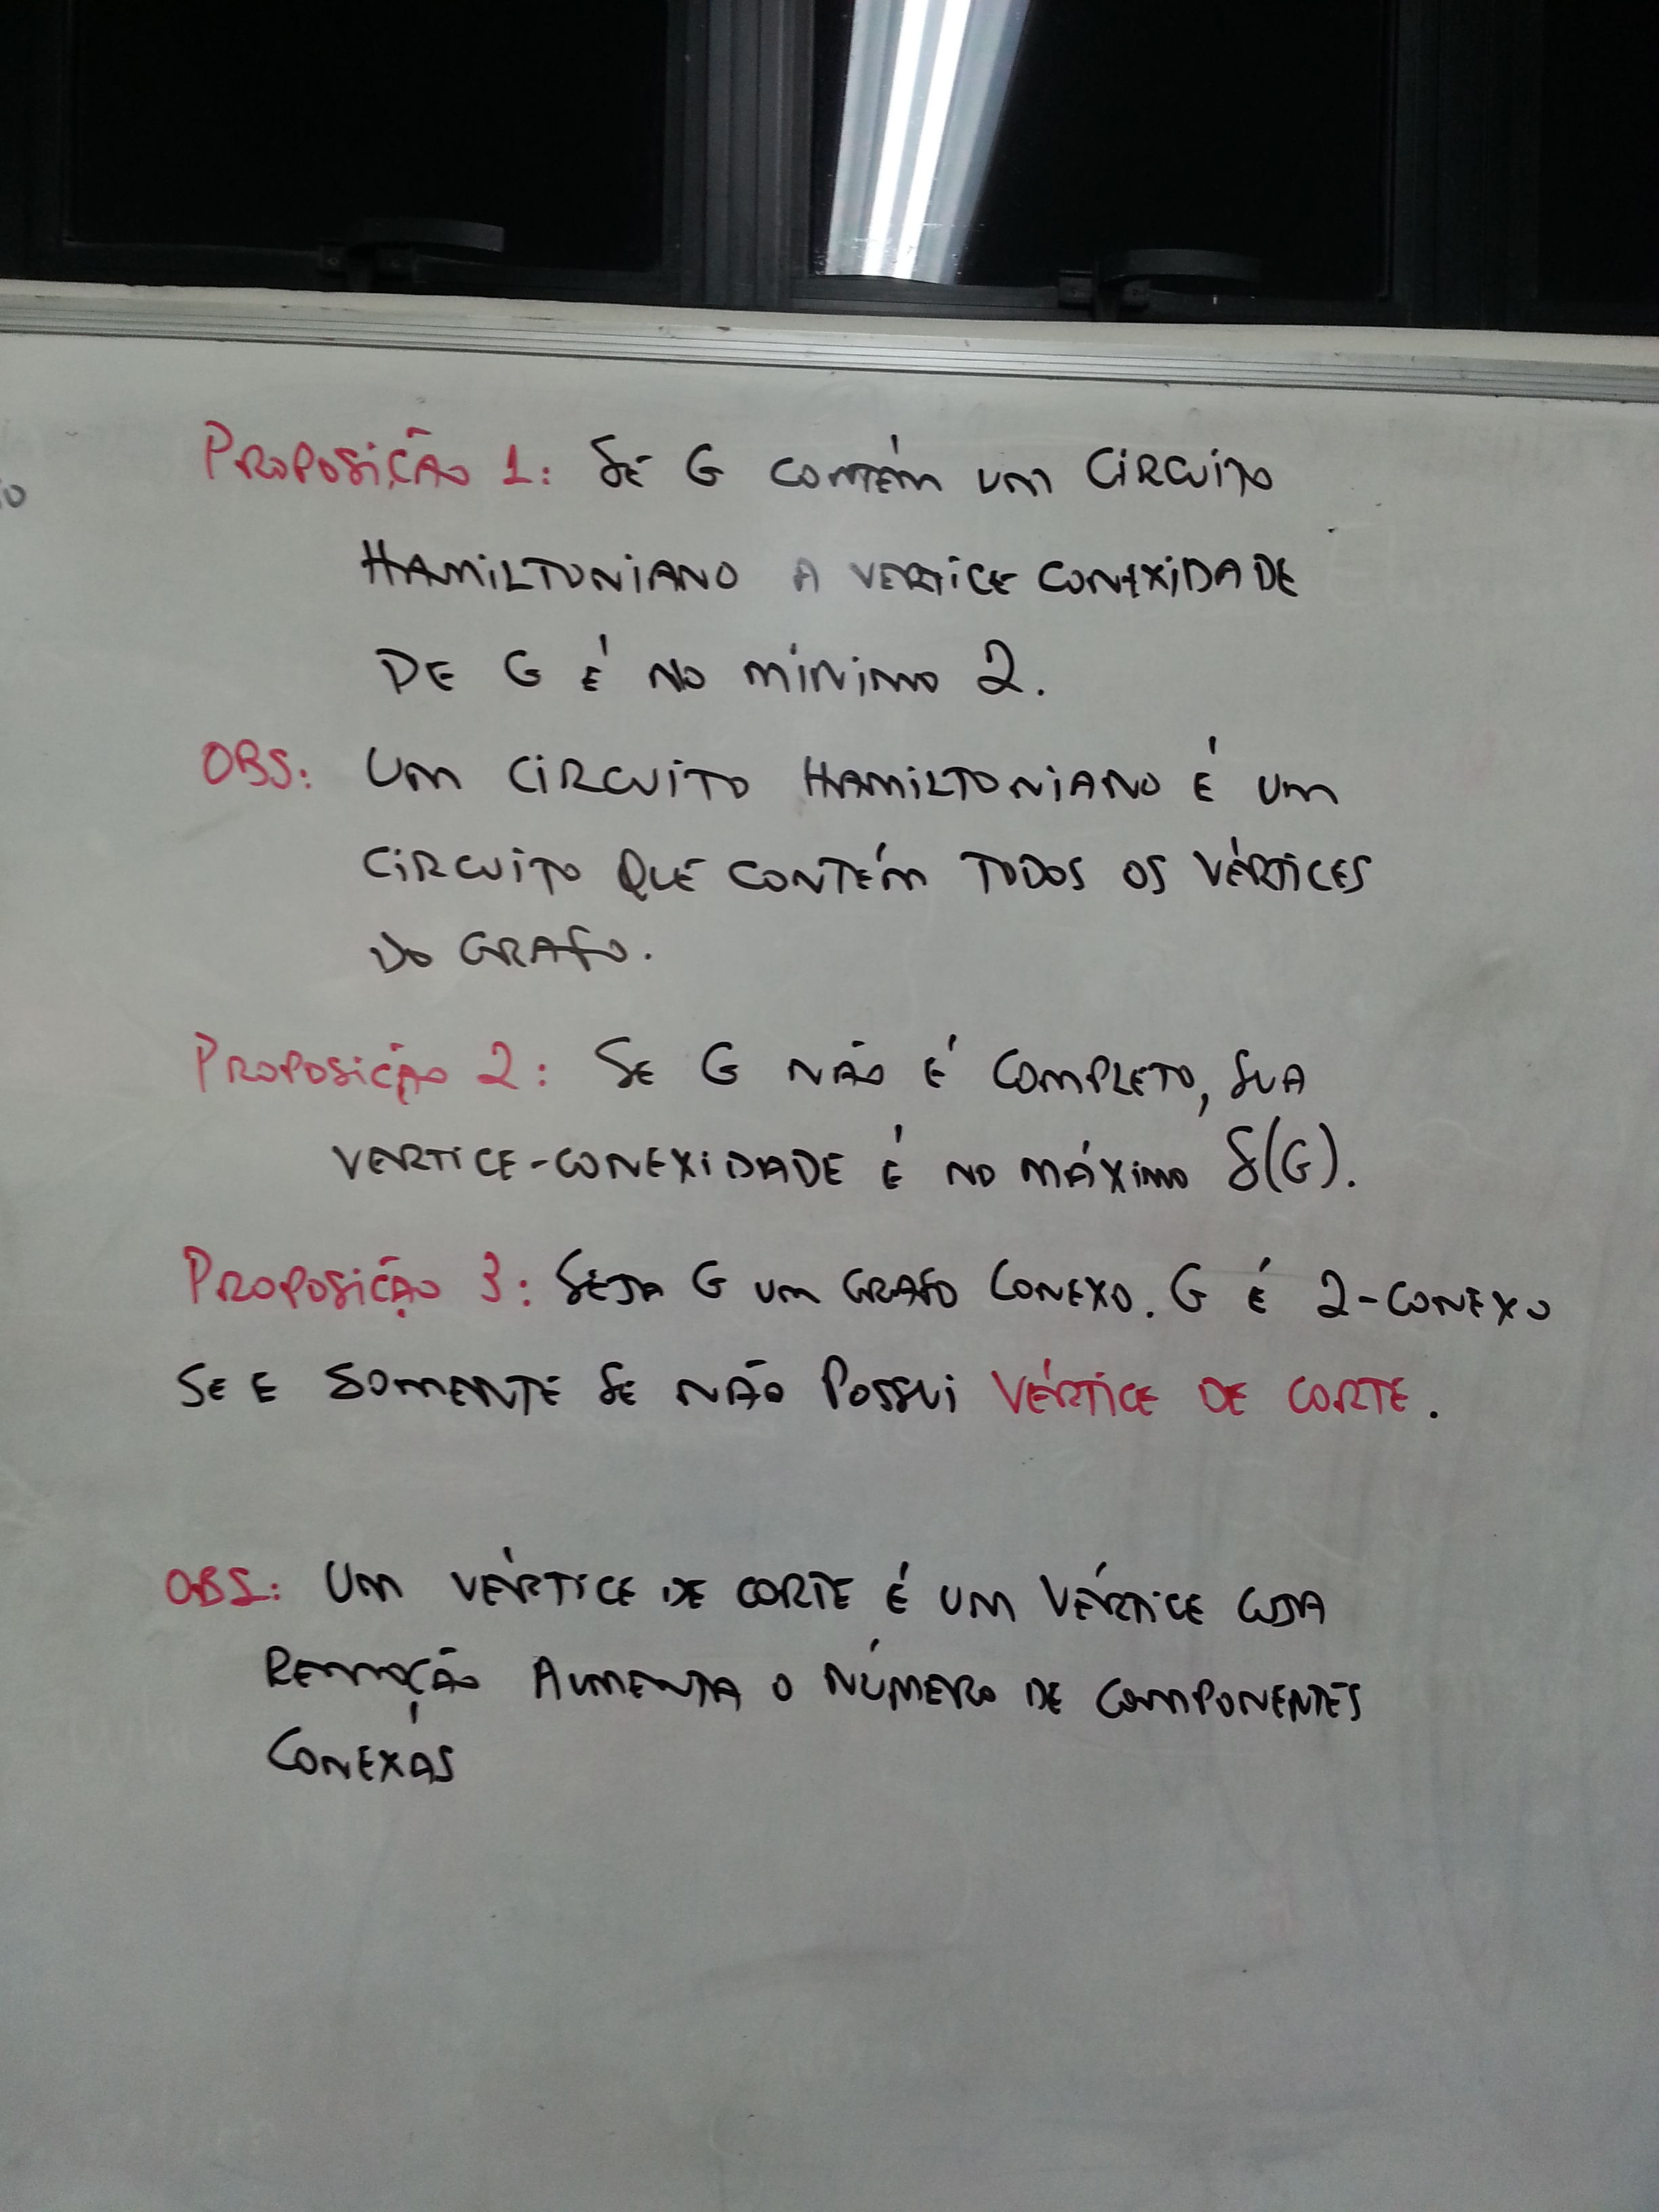 PROPOSIÇÃO 1: SE G CONTÉM UM CIRCUITO
HAMILTONIANO A VERTICE CONEXIDADE
DE G É NO MÍNIMO 2.
OBS: UM CIRCUITO HAMILTONIANO É UM
CIRCUITO QUE CONTÉM TODOS OS VÉRTICES
DO GRAFO.
PROPOSIÇÃO 2: SE G NÃO É COMPLETO, SUA
VERTICE-CONEXIDADE É NO MÁXIMO δ(G).
PROPOSIÇÃO 3: SEJA G UM GRAFO CONEXO. G É 2-CONEXO
SE E SOMENTE SE NÃO POSSUI VÉRTICE DE CORTE.
OBS: UM VÉRTICE DE CORTE É UM VÉRTICE CUJA
REMOÇÃO AUMENTA O NÚMERO DE COMPONENTES
CONEXAS